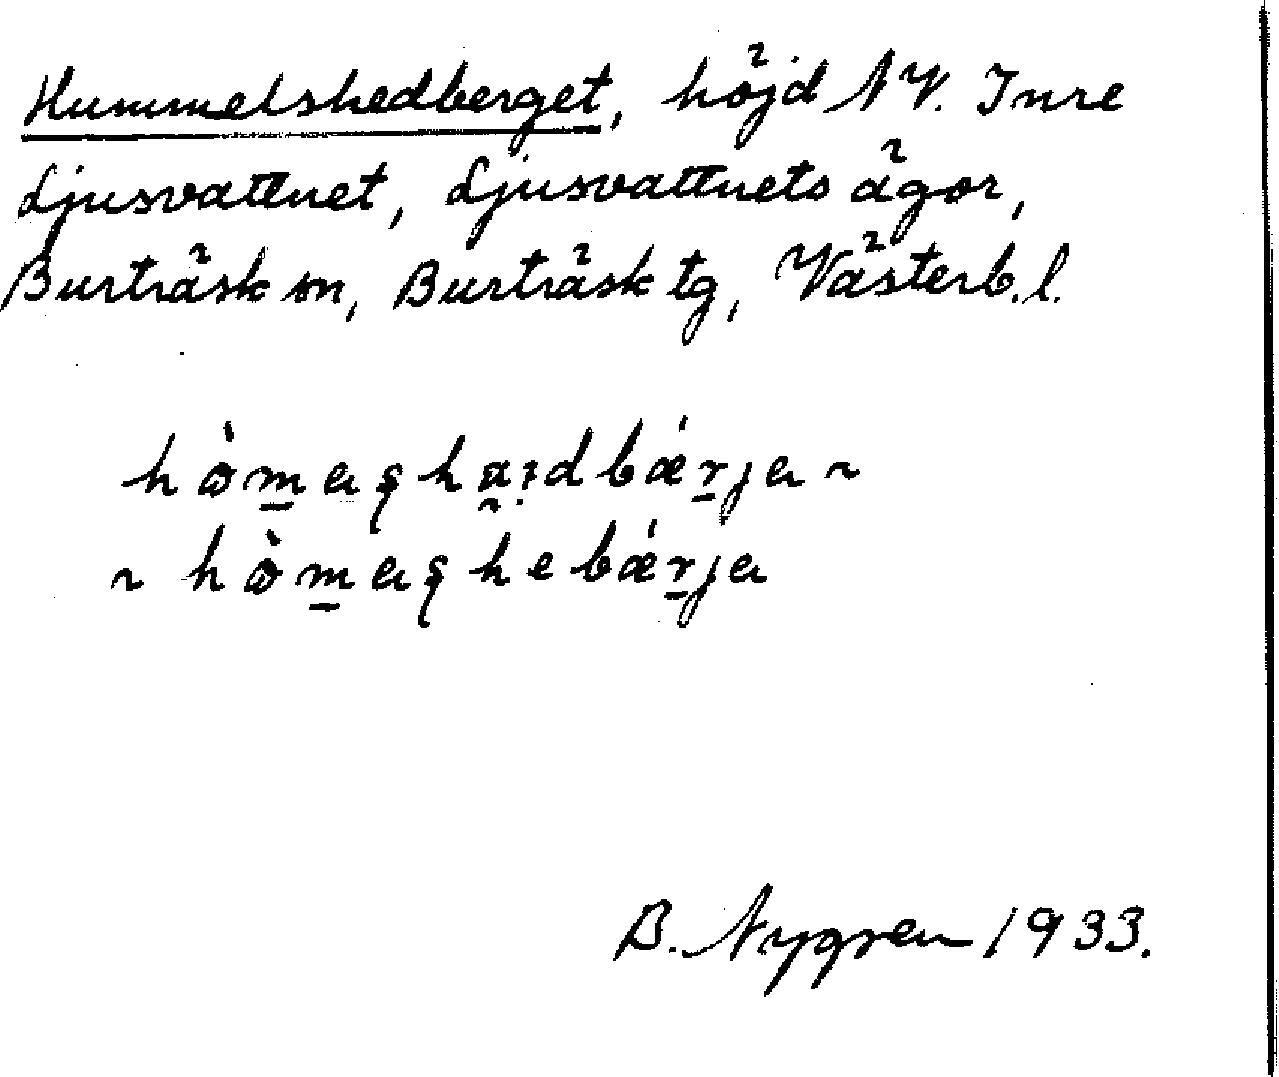 Hummelshedberget, höjd NV. Inre
Ljusvattnet, Ljusvattnets ägor,
Burträsk sn, Burträsk tg, Västerb. l.
B. Nygren 1933.